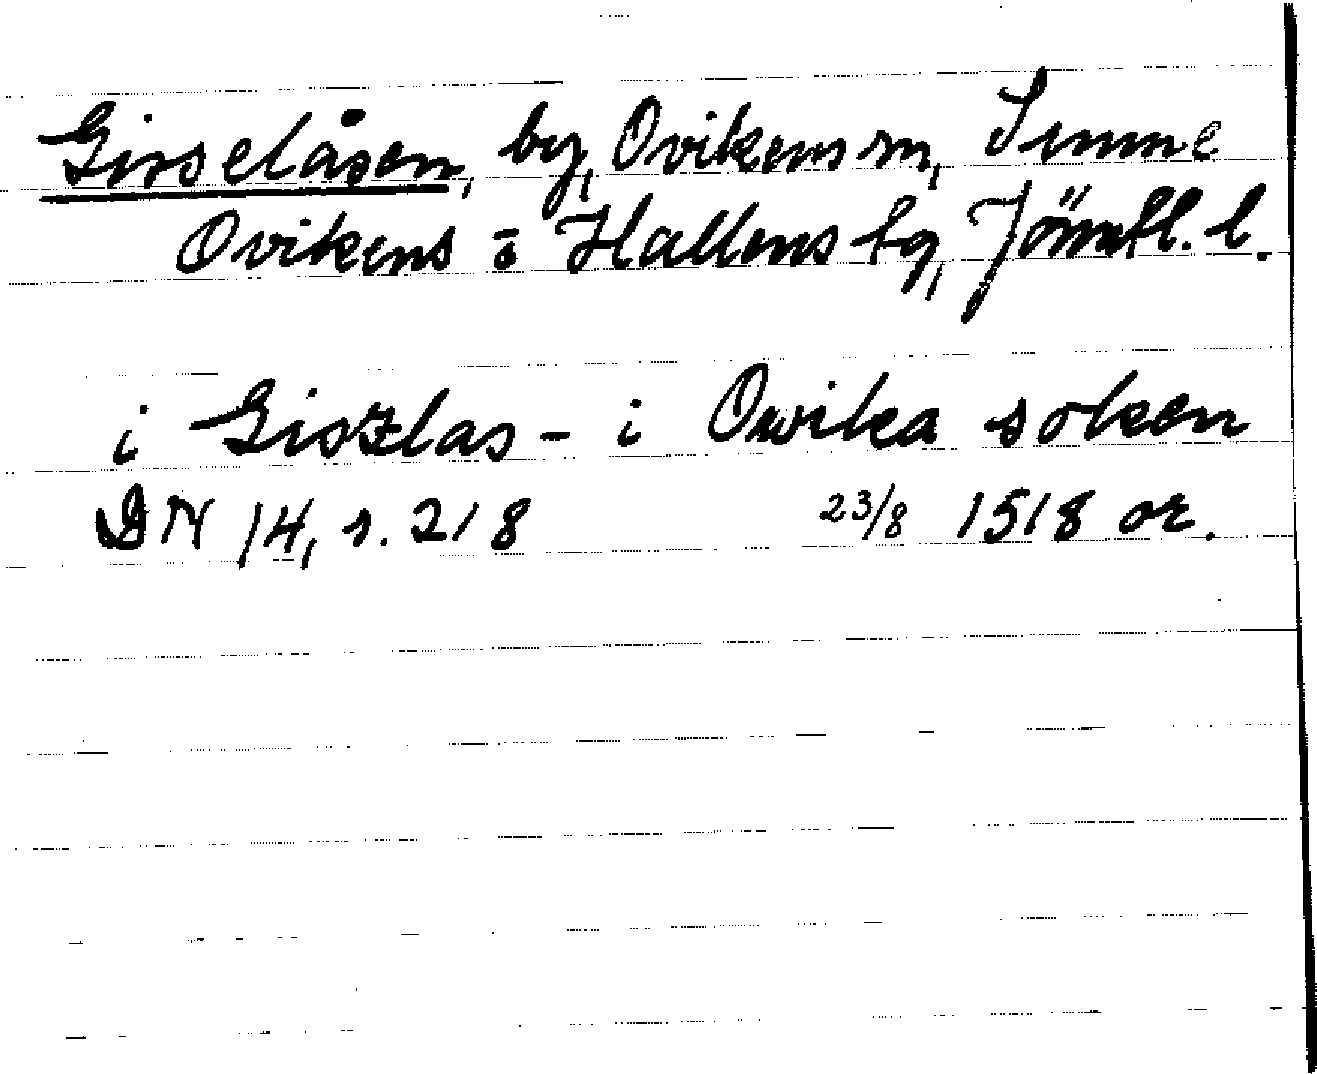 Gisselåsen, by, Ovikens sn, Sunne
Ovikens o Hallens tg, Jämtl. l.
i Giszlas - i Owika soken
DN 14, s. 218 23/8 1518 or.